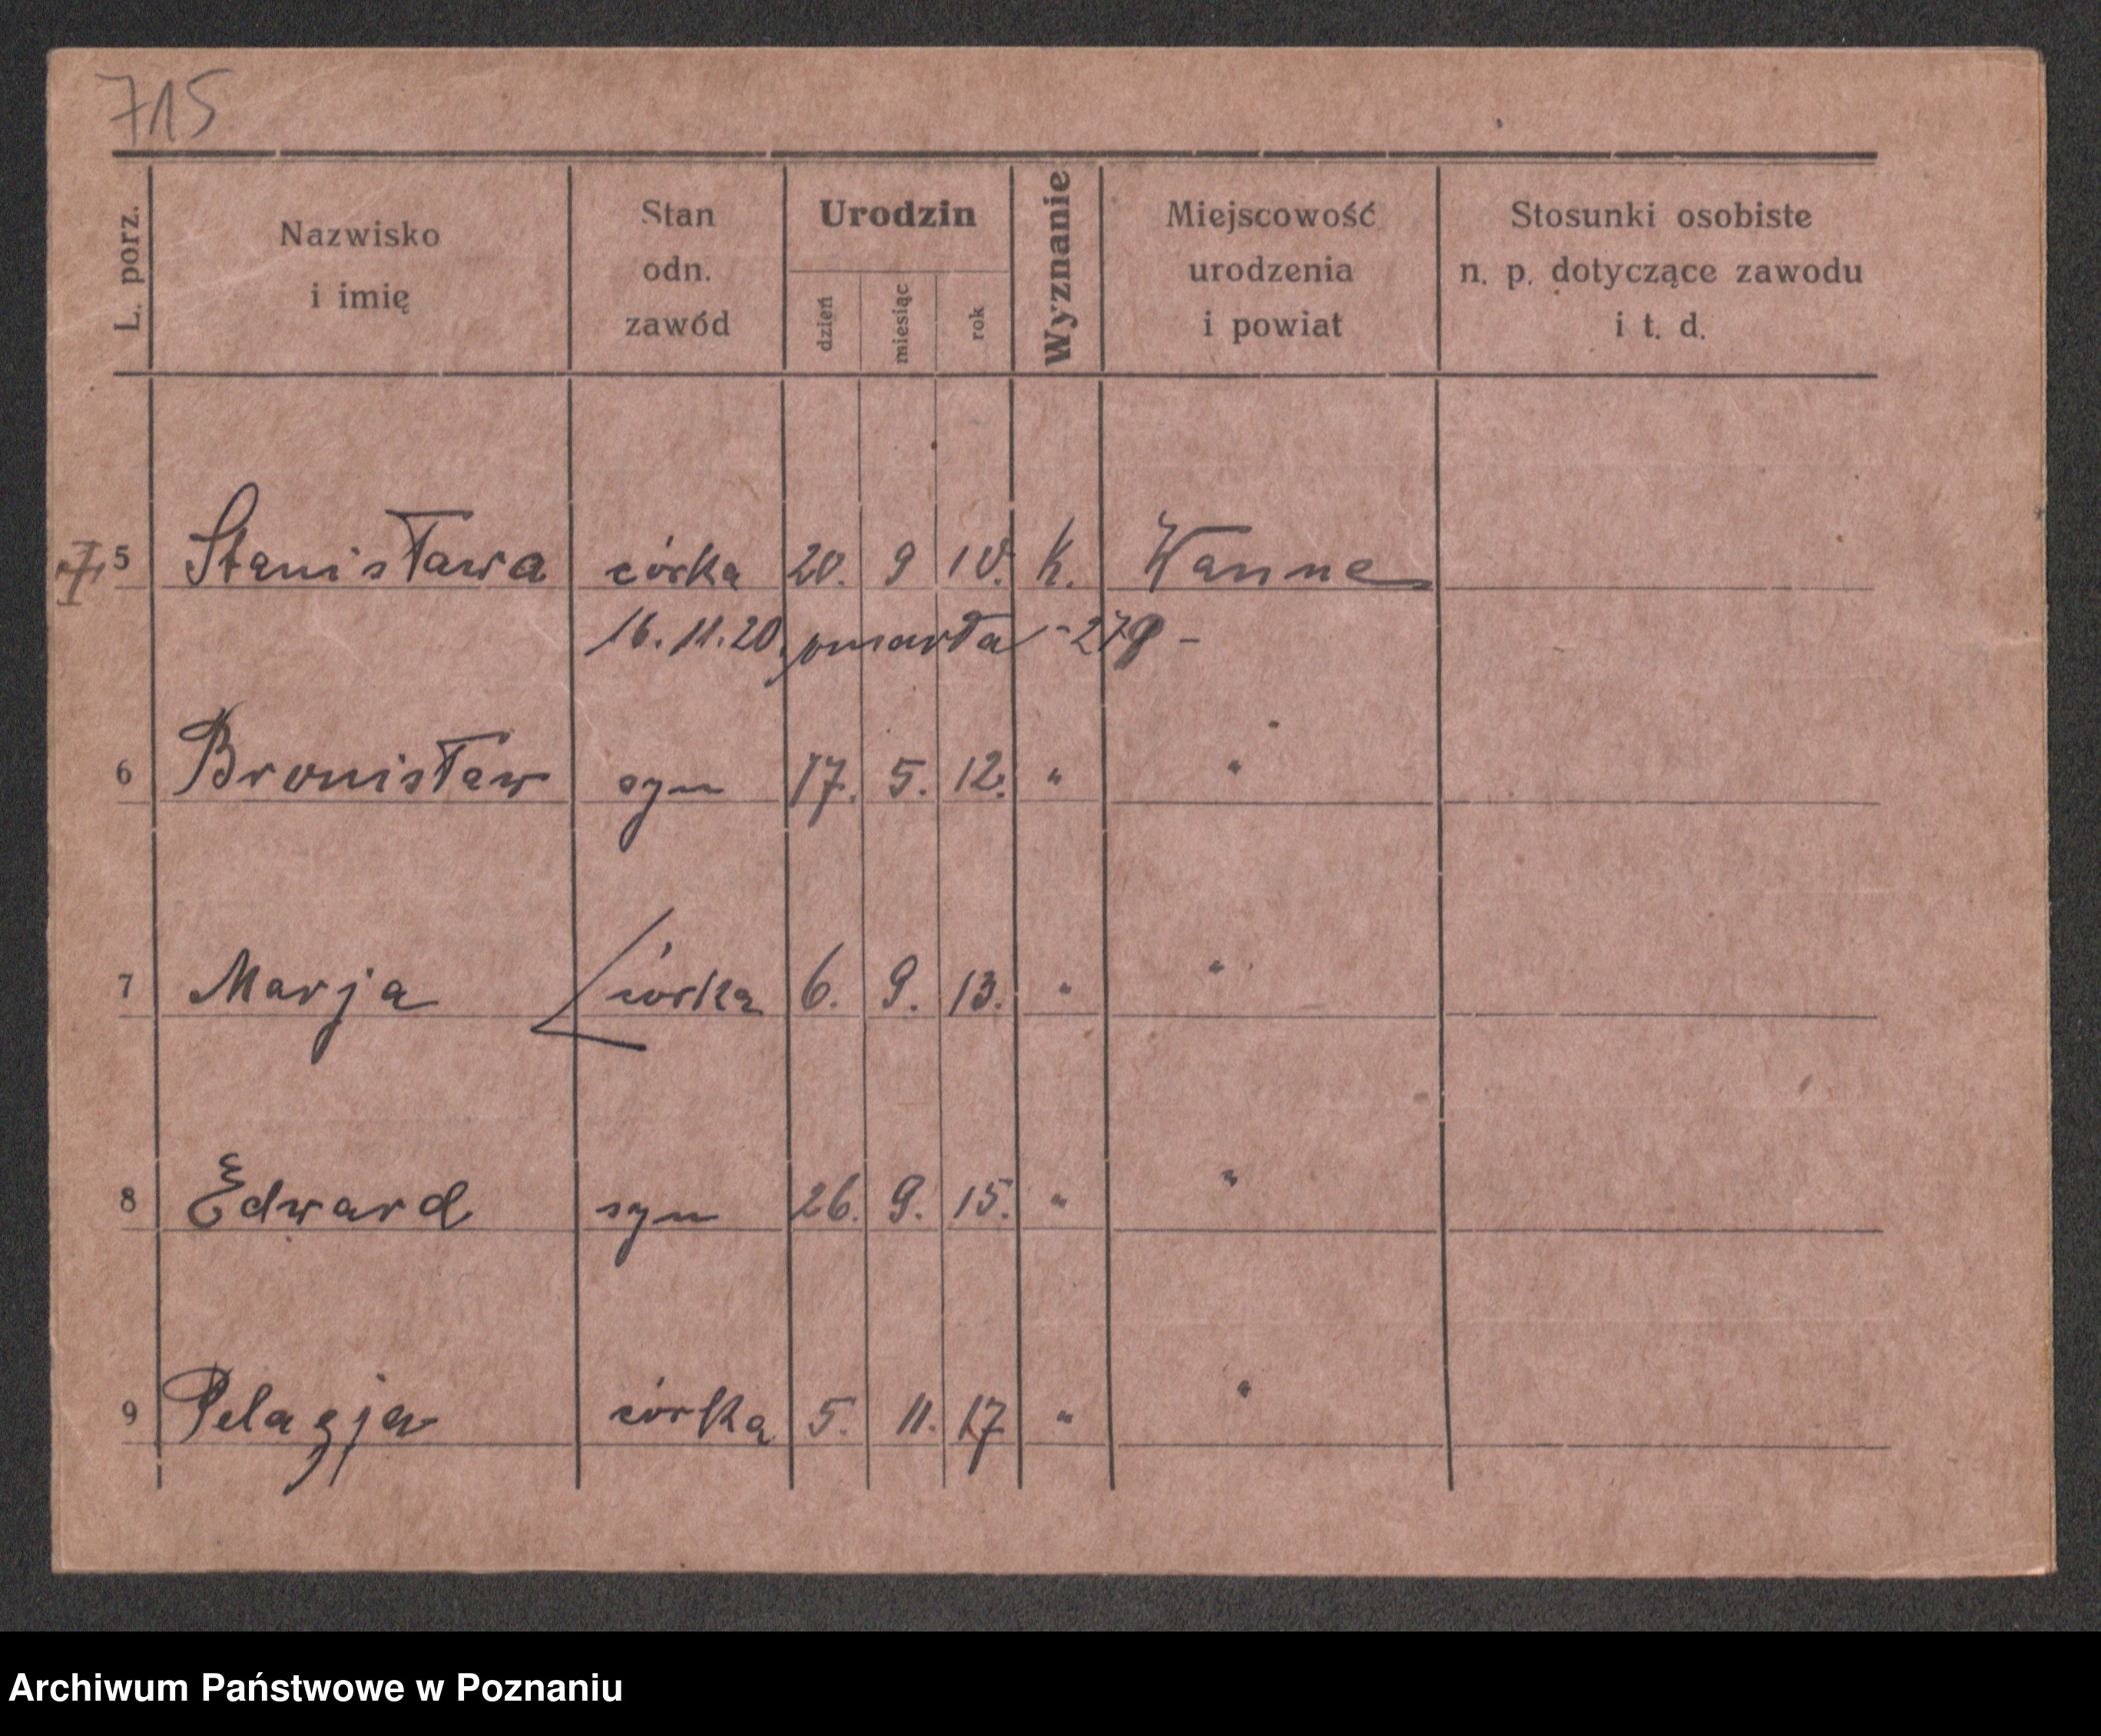 715
L. porz. Nazwisko i imię Stan odn. zawód Urodzin dzień miesiąc rok Wyznanie Miejscowość urodzenia i powiat Stosunki osobiste n. p. dotyczące zawodu i t. d.
5 Stanisława córka 20. 9 10. k. Wanne
16.11.20. umarła - 279 -
6 Bronisław syn 17. 5. 12. " "
7 Marja córka 6. 9. 13. " "
8 Edward syn 26. 9. 15. " "
9 Pelagja córka 5. 11. 17 " "
Archiwum Państwowe w Poznaniu